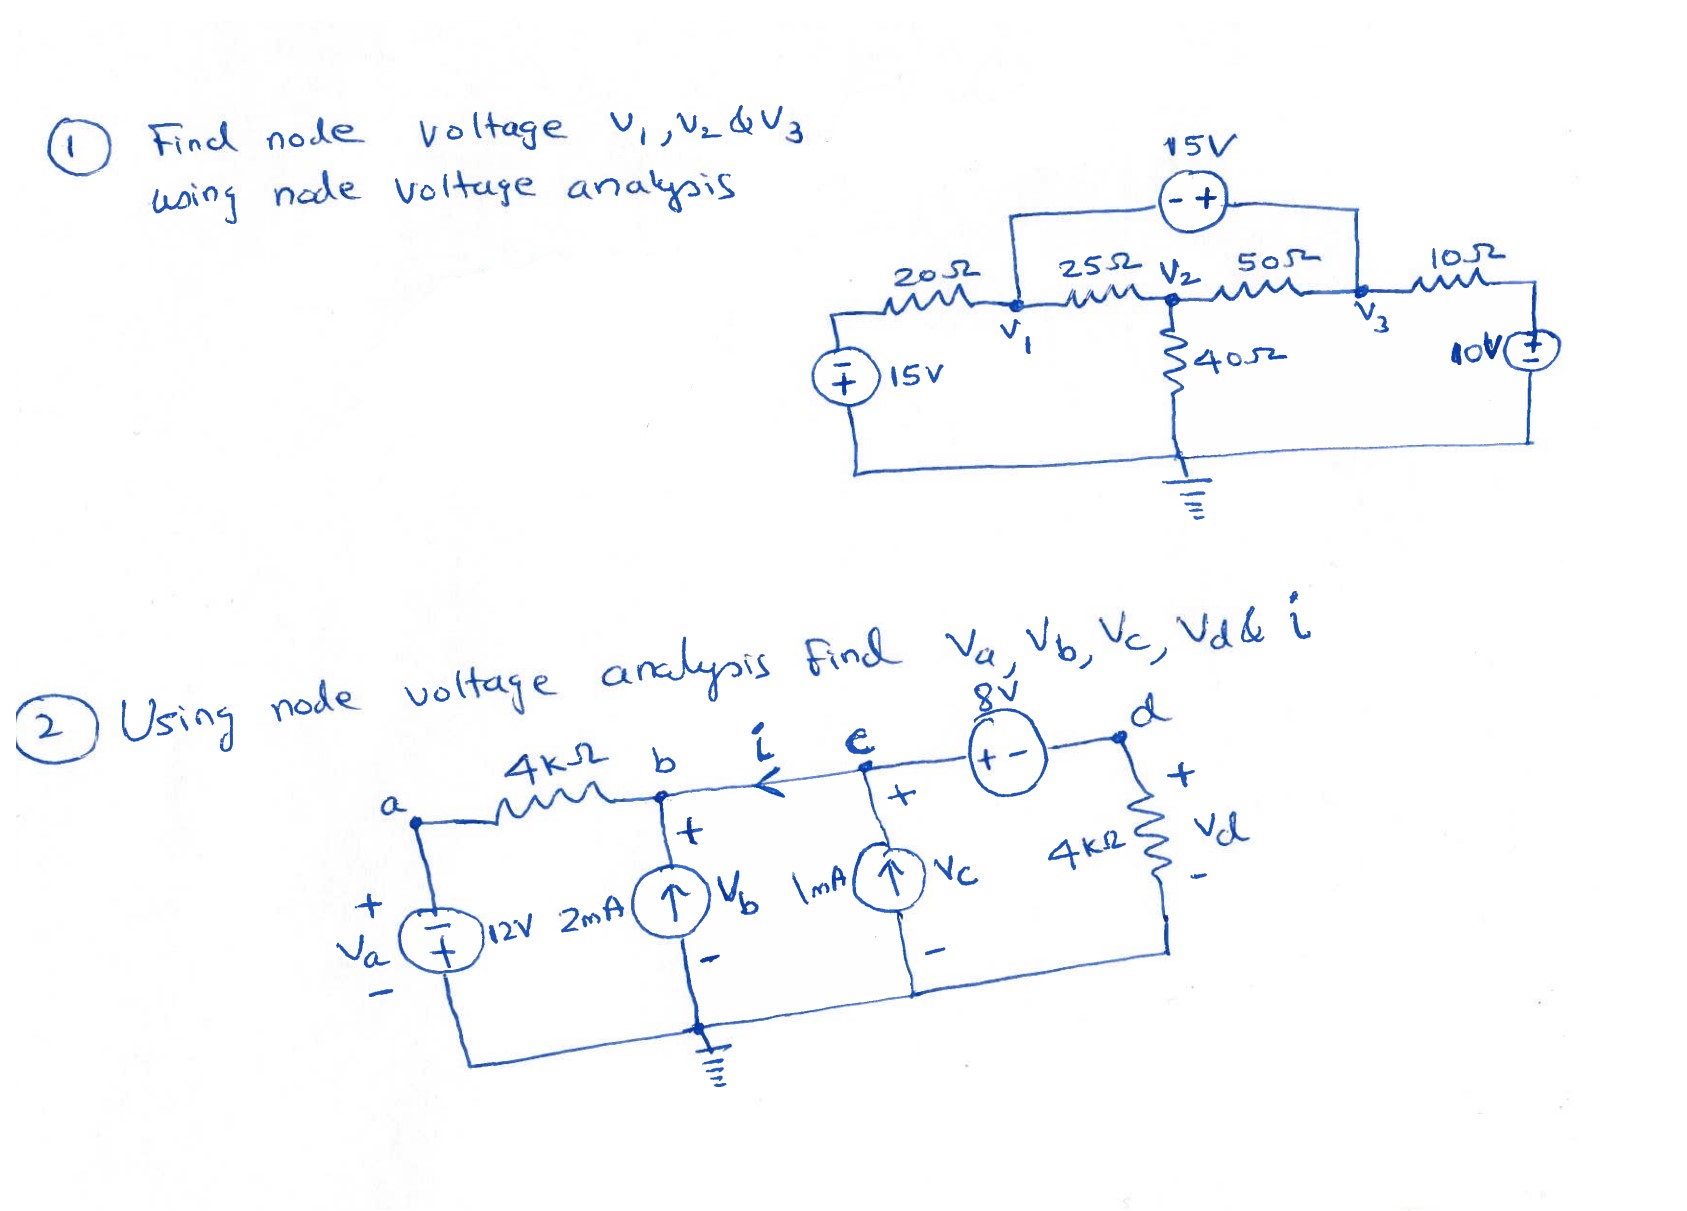 ① Find node voltage V₁, V₂ & V₃
using node voltage analysis
15V
- +
20Ω 25Ω V₂ 50Ω 10Ω
V₁ V₃
- + 15V 40Ω 10V + -
② Using node voltage analysis find Va, Vb, Vc, Vd & i
8V
4KΩ b i c + - d
a
+ + +
+ Va - - + 12V 2mA Vb 1mA Vc 4KΩ Vd
- - -